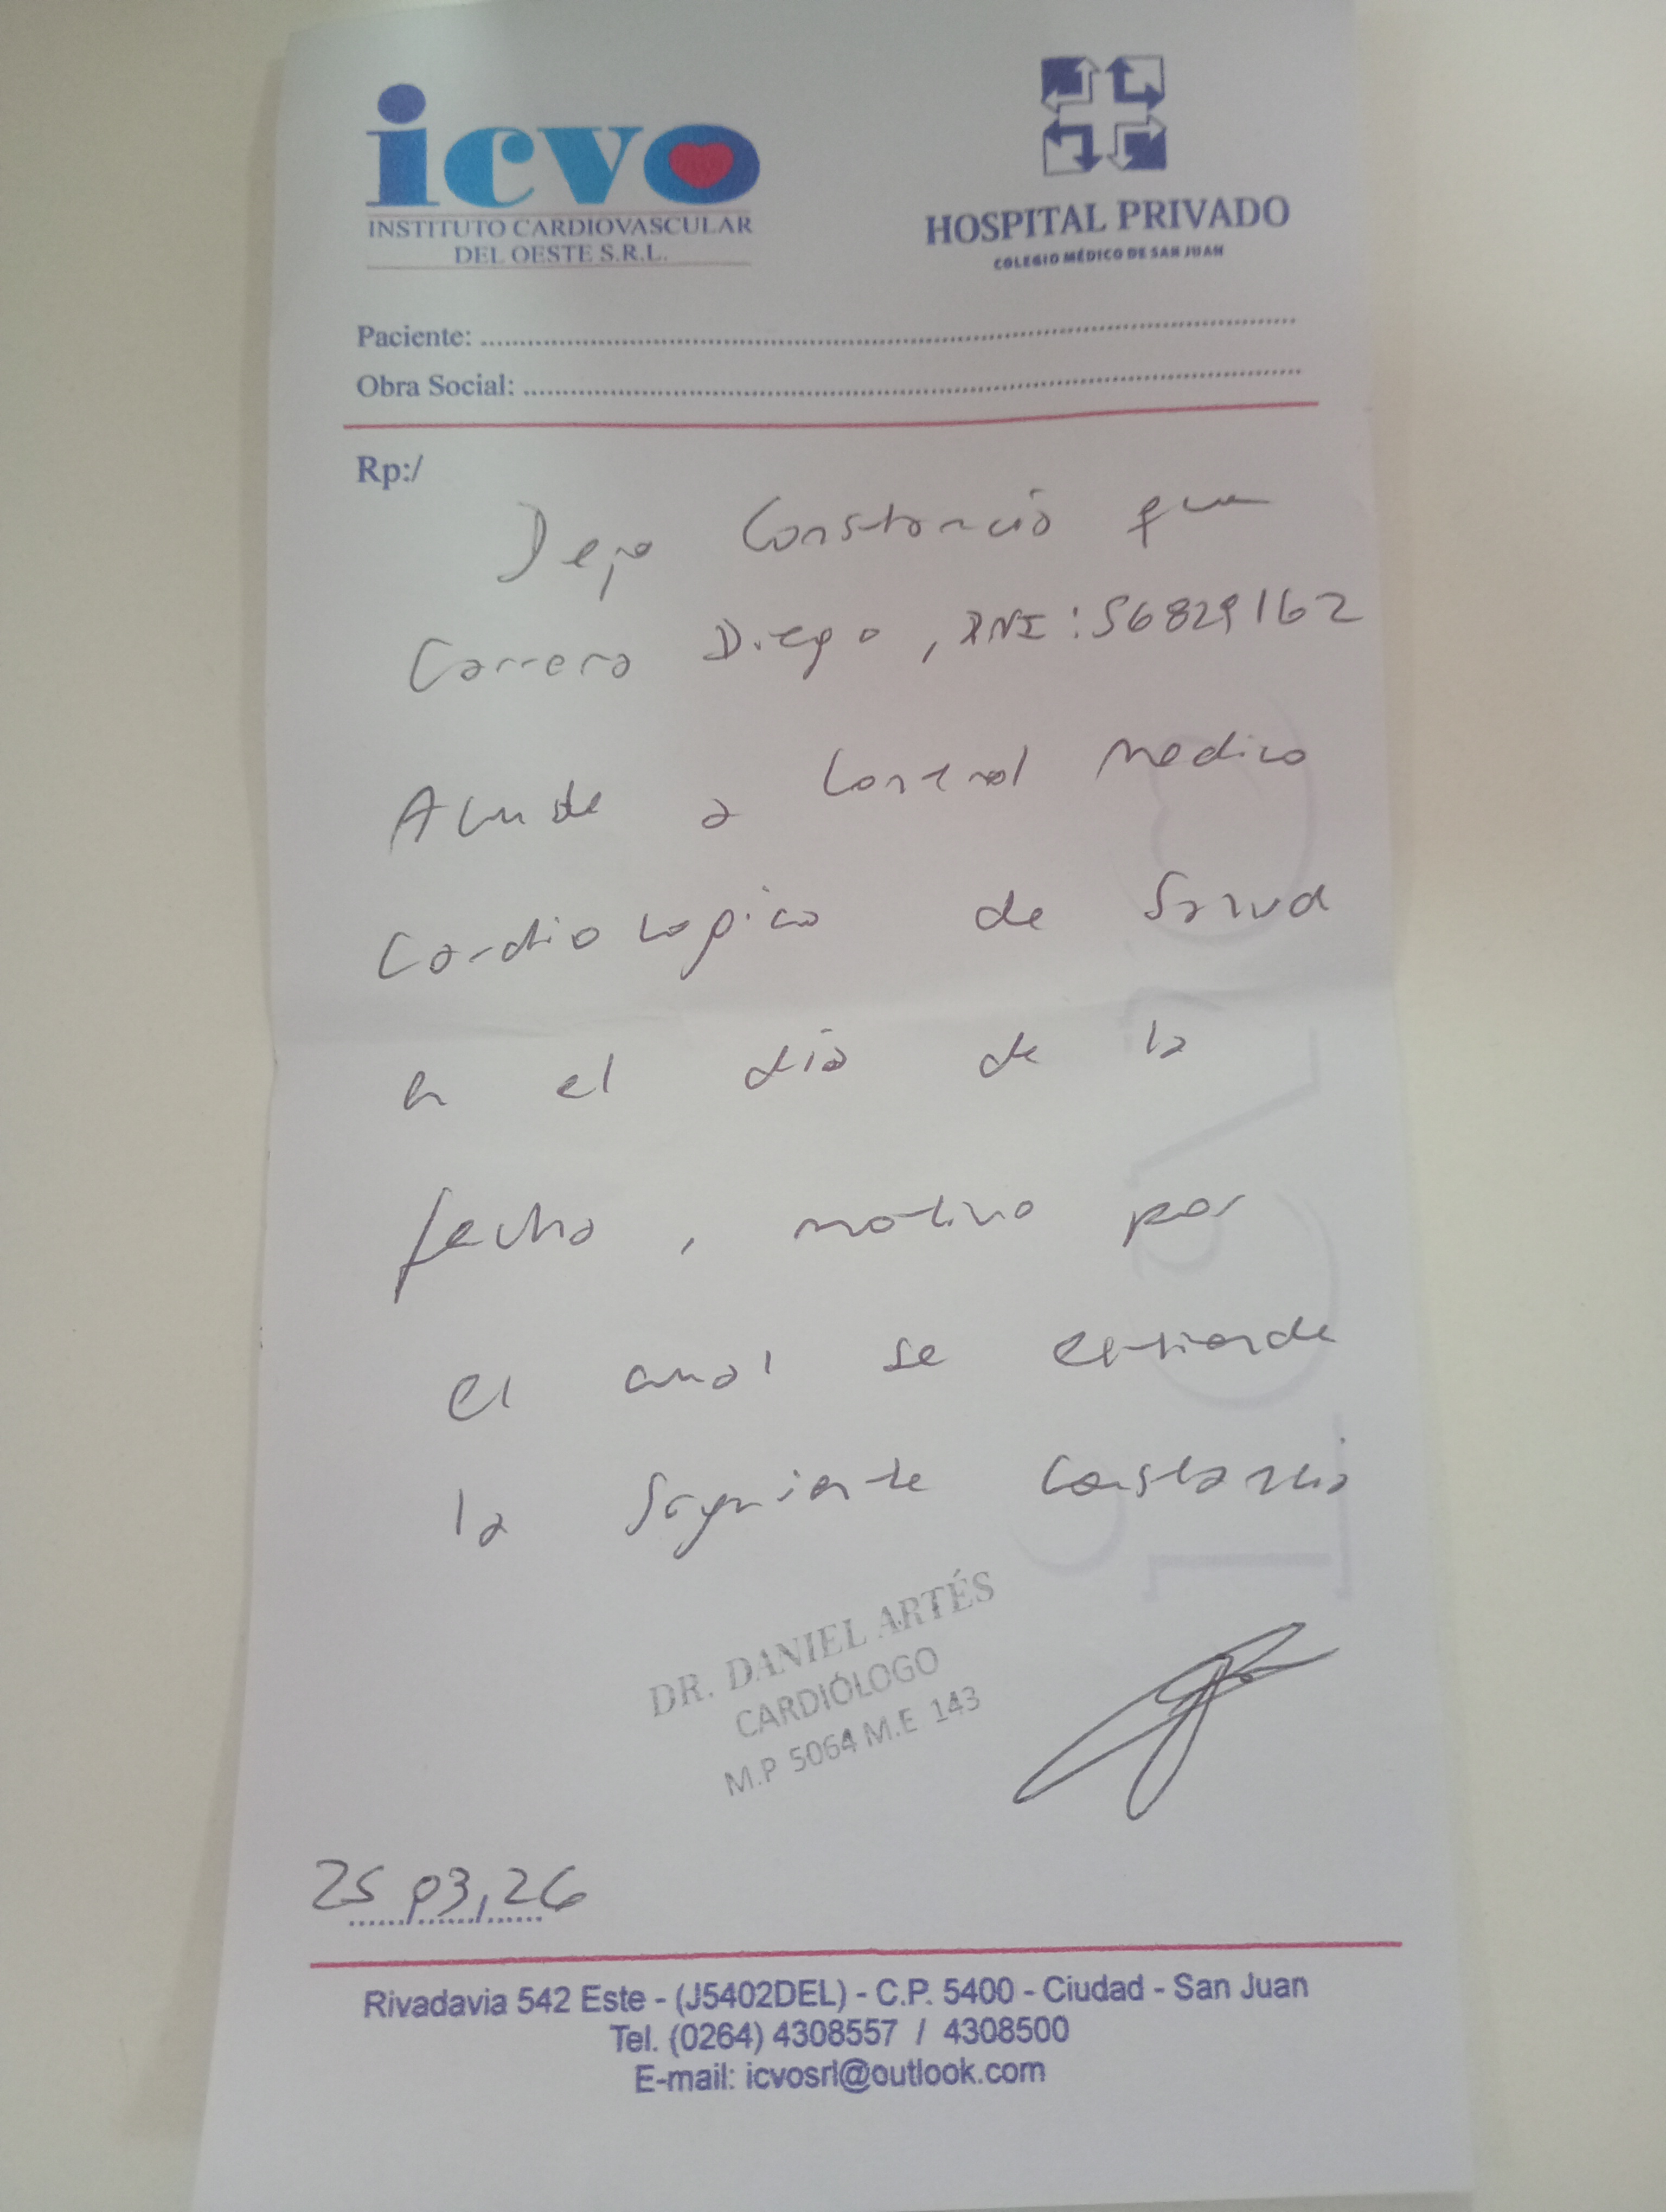 icvo
INSTITUTO CARDIOVASCULAR
DEL OESTE S.R.L.
HOSPITAL PRIVADO
COLEGIO MÉDICO DE SAN JUAN
Paciente:
Obra Social:
Rp:/
Dejo Constancia que
Carrera Diego, DNI: 56829162
Acude a Control Medico
Cardiologico de Salud
en el día de la
fecha, motivo por
el cual se extiende
la siguiente Constancia
DR. DANIEL ARTÉS
CARDIÓLOGO
M.P 5064 M.E 143
25,03,26
Rivadavia 542 Este - (J5402DEL) - C.P. 5400 - Ciudad - San Juan
Tel. (0264) 4308557 / 4308500
E-mail: icvosrl@outlook.com